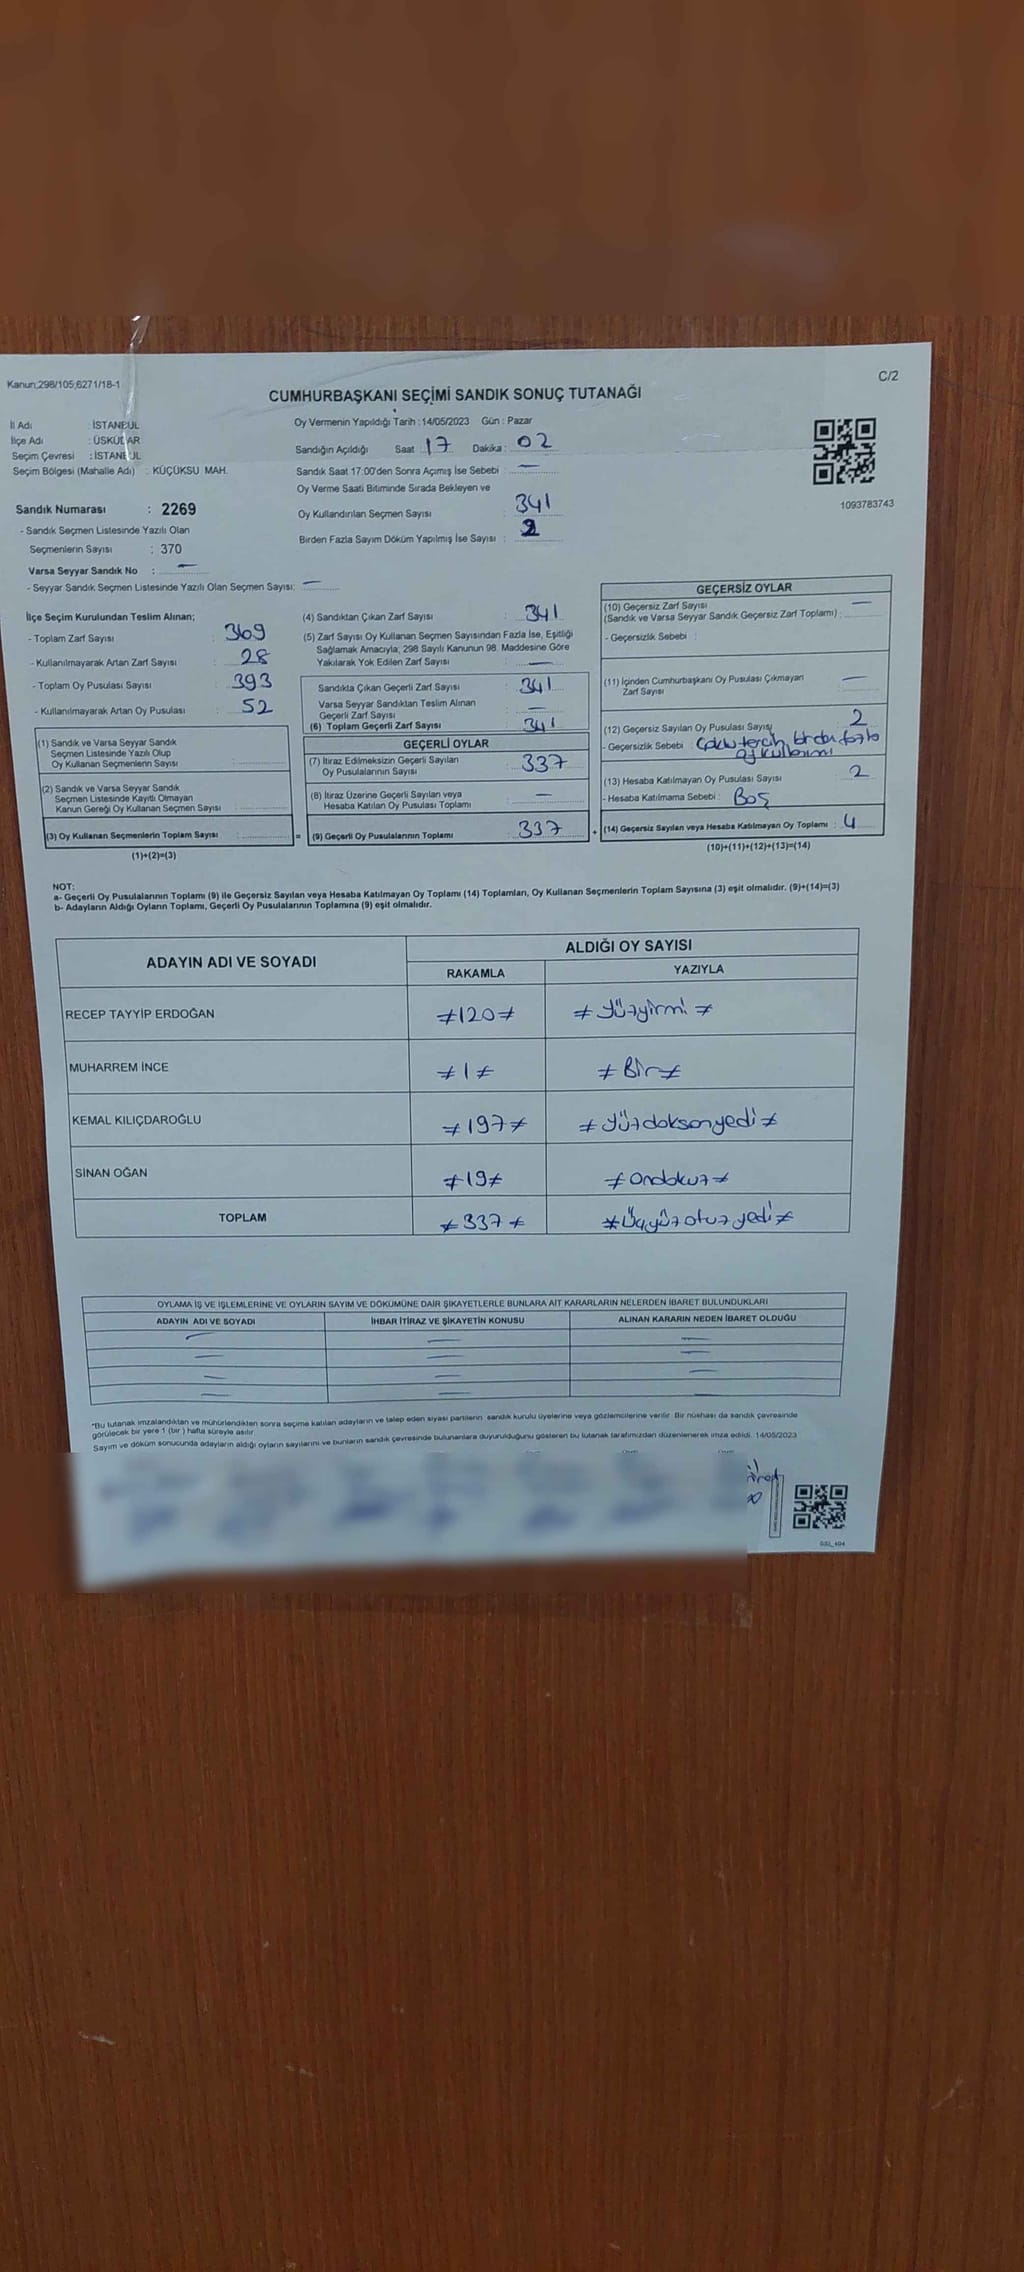 Kanun;298/105;6271/18-1
C/2
CUMHURBAŞKANI SEÇİMİ SANDIK SONUÇ TUTANAĞI
İl Adı : İSTANBUL
İlçe Adı : ÜSKÜDAR
Seçim Çevresi : İSTANBUL
Seçim Bölgesi (Mahalle Adı) : KÜÇÜKSU MAH.
Sandık Numarası : 2269
- Sandık Seçmen Listesinde Yazılı Olan
Seçmenlerin Sayısı : 370
Varsa Seyyar Sandık No : —
- Seyyar Sandık Seçmen Listesinde Yazılı Olan Seçmen Sayısı: —
Oy Vermenin Yapıldığı Tarih : 14/05/2023 Gün : Pazar
Sandığın Açıldığı Saat 17 Dakika : 02
Sandık Saat 17:00'den Sonra Açımış İse Sebebi : —
Oy Verme Saati Bitiminde Sırada Bekleyen ve
Oy Kullandırılan Seçmen Sayısı : 341
Birden Fazla Sayım Döküm Yapılmış İse Sayısı : 2
1093783743
İlçe Seçim Kurulundan Teslim Alınan;
- Toplam Zarf Sayısı : 369
- Kullanılmayarak Artan Zarf Sayısı : 28
- Toplam Oy Pusulası Sayısı : 393
- Kullanılmayarak Artan Oy Pusulası : 52
(1) Sandık ve Varsa Seyyar Sandık
Seçmen Listesinde Yazılı Olup
Oy Kullanan Seçmenlerin Sayısı :
(2) Sandık ve Varsa Seyyar Sandık
Seçmen Listesinde Kayıtlı Olmayan
Kanun Gereği Oy Kullanan Seçmen Sayısı :
(3) Oy Kullanan Seçmenlerin Toplam Sayısı : =
(1)+(2)=(3)
(4) Sandıktan Çıkan Zarf Sayısı : 341
(5) Zarf Sayısı Oy Kullanan Seçmen Sayısından Fazla İse, Eşitliği
Sağlamak Amacıyla; 298 Sayılı Kanunun 98. Maddesine Göre
Yakılarak Yok Edilen Zarf Sayısı : —
Sandıkta Çıkan Geçerli Zarf Sayısı : 341
Varsa Seyyar Sandıktan Teslim Alınan
Geçerli Zarf Sayısı : —
(6) Toplam Geçerli Zarf Sayısı : 341
GEÇERLİ OYLAR
(7) İtiraz Edilmeksizin Geçerli Sayılan
Oy Pusulalarının Sayısı : 337
(8) İtiraz Üzerine Geçerli Sayılan veya
Hesaba Katılan Oy Pusulası Toplamı : —
(9) Geçerli Oy Pusulalarının Toplamı : 337 +
GEÇERSİZ OYLAR
(10) Geçersiz Zarf Sayısı
(Sandık ve Varsa Seyyar Sandık Geçersiz Zarf Toplamı) : —
- Geçersizlik Sebebi :
(11) İçinden Cumhurbaşkanı Oy Pusulası Çıkmayan
Zarf Sayısı : —
(12) Geçersiz Sayılan Oy Pusulası Sayısı : 2
- Geçersizlik Sebebi : Çoklu tercih, birden fazla
oy kullanımı
(13) Hesaba Katılmayan Oy Pusulası Sayısı : 2
- Hesaba Katılmama Sebebi : Boş
(14) Geçersiz Sayılan veya Hesaba Katılmayan Oy Toplamı : 4
(10)+(11)+(12)+(13)=(14)
NOT:
a- Geçerli Oy Pusulalarının Toplamı (9) ile Geçersiz Sayılan veya Hesaba Katılmayan Oy Toplamı (14) Toplamları, Oy Kullanan Seçmenlerin Toplam Sayısına (3) eşit olmalıdır. (9)+(14)=(3)
b- Adayların Aldığı Oyların Toplamı, Geçerli Oy Pusulalarının Toplamına (9) eşit olmalıdır.
ADAYIN ADI VE SOYADI ALDIĞI OY SAYISI
RAKAMLA YAZIYLA
RECEP TAYYİP ERDOĞAN ≠120≠ ≠ Yüzyirmi ≠
MUHARREM İNCE ≠1≠ ≠Bir≠
KEMAL KILIÇDAROĞLU ≠197≠ ≠Yüzdoksanyedi≠
SİNAN OĞAN ≠19≠ ≠Ondokuz≠
TOPLAM ≠337≠ ≠Üçyüzotuzyedi≠
OYLAMA İŞ VE İŞLEMLERİNE VE OYLARIN SAYIM VE DÖKÜMÜNE DAİR ŞİKAYETLERLE BUNLARA AİT KARARLARIN NELERDEN İBARET BULUNDUKLARI
ADAYIN ADI VE SOYADI İHBAR İTİRAZ VE ŞİKAYETİN KONUSU ALINAN KARARIN NEDEN İBARET OLDUĞU
— — —
— — —
— — —
— — —
*Bu tutanak imzalandıktan ve mühürlendikten sonra seçime katılan adayların ve talep eden siyasi partilerin sandık kurulu üyelerine veya gözlemcilerine verilir. Bir nüshası da sandık çevresinde
görülecek bir yere 1 (bir ) hafta süreyle asılır.
Sayım ve döküm sonucunda adayların aldığı oyların sayılarını ve bunların sandık çevresinde bulunanlara duyurulduğunu gösteren bu tutanak tarafımızdan düzenlenerek imza edildi. 14/05/2023